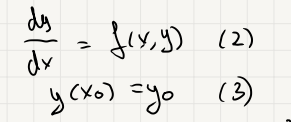 dy/dx = f(x,y) (2)
y(x₀) = y₀ (3)